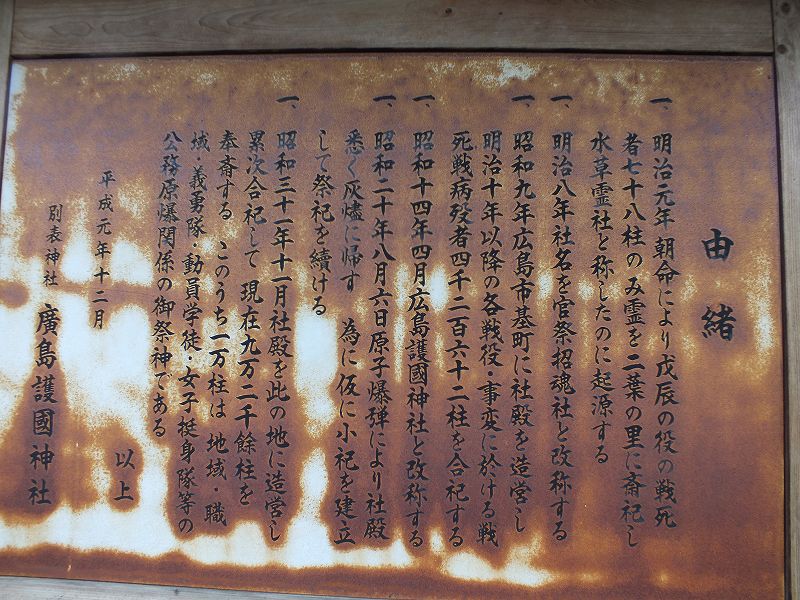 由緒
一、明治元年朝命により戊辰の役の戦死
者七十八柱のみ霊を二葉の里に斎祀し
水草霊社と称したのに起源する
一、明治八年社名を官祭招魂社と改称する
一、昭和九年広島市基町に社殿を造営し
明治十年以降の各戦役・事変に於ける戦
死戦病歿者四千二百六十二柱を合祀する
一、昭和十四年四月広島護國神社と改称する
一、昭和二十年八月六日原子爆弾により社殿
悉く灰燼に帰す 為に仮に小祀を建立
して祭祀を続ける
一、昭和三十一年十一月社殿を此の地に造営し
累次合祀して現在九万二千餘柱を
奉斎する このうち一万柱は地域・職
域・義勇隊・動員学徒・女子挺身隊等の
公務原爆関係の御祭神である
以上
平成元年十二月
別表神社 廣島護國神社